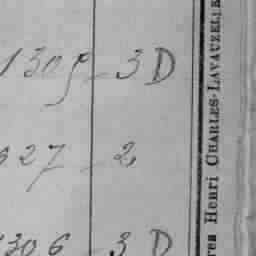 1305 - 3 D
627 - 2
1306 - 3 D
Henri CHARLES-LAVAUZELLE